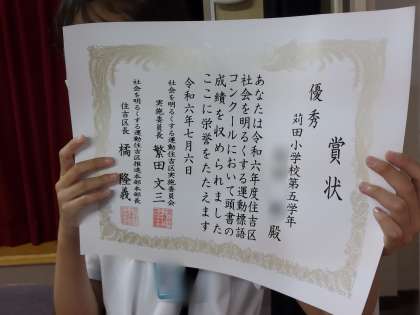 賞状
優秀
苅田小学校第五学年
殿
あなたは令和六年度住吉区
社会を明るくする運動標語
コンクールにおいて頭書の
成績を収められました
ここに栄誉をたたえます
令和六年七月六日
社会を明るくする運動住吉区実施委員会
実施委員長 繁田文三
社会を明るくする運動住吉区推進本部本部長
住吉区長 橘隆義